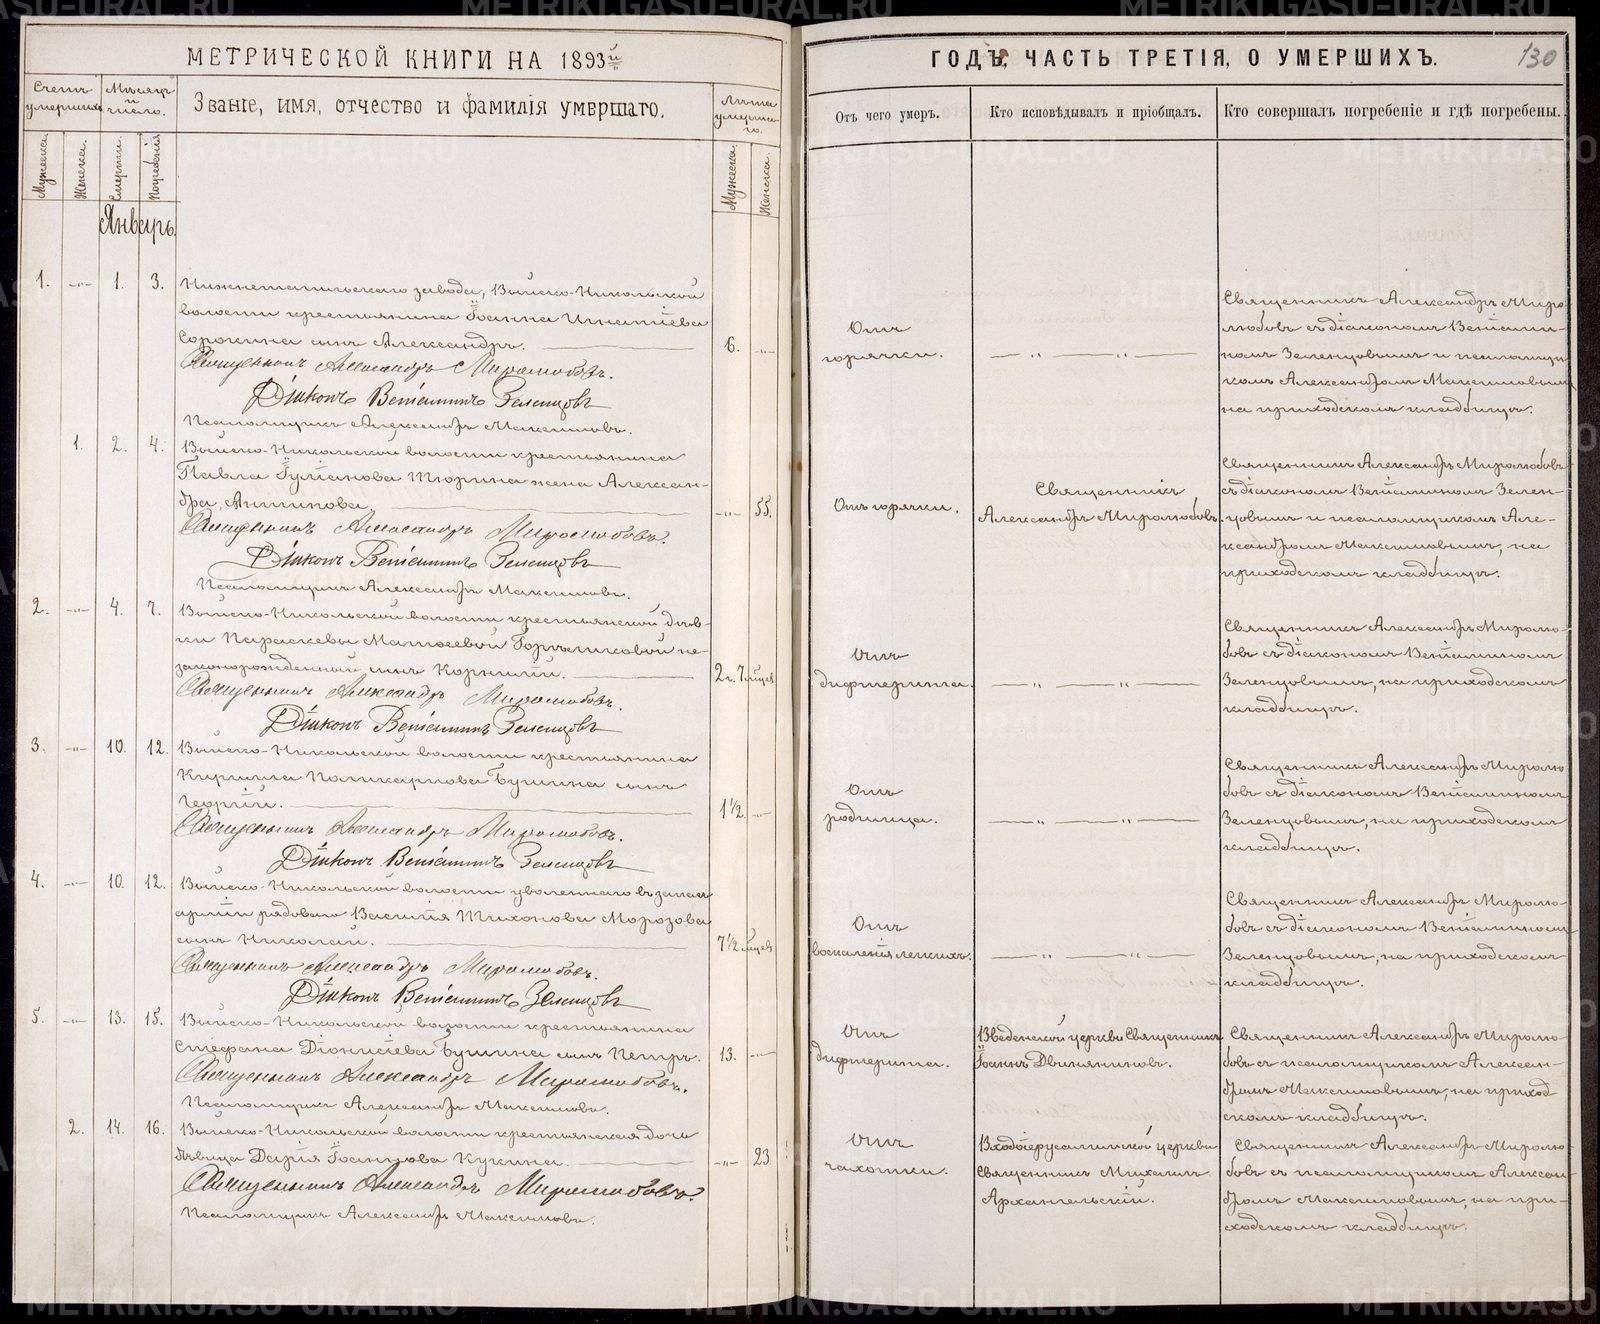 МЕТРИЧЕСКОЙ КНИГИ НА 1893й
Счетъ умершихъ.
Мѣсяцъ и число.
Званіе, имя, отчество и фамилія умершаго.
Лѣта умершаго.
Мужеска.
Женска.
Смерти.
Погребенія
Мужеска.
Женска.
Январь.
1. -„- 1. 3. Нижнетагильскаго завода, Выйско-Никольской
волости крестьянина Іоанна Игнатіева
Сорокина сынъ Александръ. 6. -„-
Священникъ Александръ Миролюбовъ.
Діаконъ Веніаминъ Зеленцовъ
Псаломщикъ Александръ Максимовъ.
1. 2. 4. Выйско-Никольской волости крестьянина
Павла Іуліанова Тюрина жена Алексан-
дра Антипова -„- 55.
Священникъ Александръ Миролюбовъ.
Діаконъ Веніаминъ Зеленцовъ
Псаломщикъ Александръ Максимовъ.
2. -„- 4. 7. Выйско-Никольской волости крестьянской дѣв-
ки Параскевы Матѳеевой Горѣлковой не-
законорожденный сынъ Корнилій. 2 г. 7 мцев
Священникъ Александръ Миролюбовъ.
Діаконъ Веніаминъ Зеленцовъ
3. -„- 10. 12. Выйско-Никольской волости крестьянина
Кирилла Поликарпова Бушина сынъ
Георгій. 1 1/2 -„-
Священникъ Александръ Миролюбовъ.
Діаконъ Веніаминъ Зеленцовъ
4. -„- 10. 12. Выйско-Никольской волости уволеннаго въ запасъ
арміи рядоваго Василія Тихонова Морозова
сынъ Николай. 7 1/2 мцев
Священникъ Александръ Миролюбовъ.
Діаконъ Веніаминъ Зеленцовъ
5. -„- 13. 15. Выйско-Никольской волости крестьянина
Стефана Діонисіева Бушина сынъ Петръ. 13. -„-
Священникъ Александръ Миролюбовъ.
Псаломщикъ Александръ Максимовъ.
2. 14. 16. Выйско-Никольской волости крестьянская дочь
дѣвица Дарія Іоаннова Кукина. -„- 23
Священникъ Александръ Миролюбовъ
Псаломщикъ Александръ Максимовъ.
ГОДЪ, ЧАСТЬ ТРЕТІЯ, О УМЕРШИХЪ.
130
Отъ чего умеръ.
Кто исповѣдывалъ и пріобщалъ.
Кто совершалъ погребеніе и гдѣ погребены.
Отъ
горячки.
— „ — „ —
Священникъ Александръ Миро-
любовъ съ діакономъ Веніами-
номъ Зеленцовымъ и псаломщи-
комъ Александромъ Максимовымъ
на приходскомъ кладбищѣ.
Отъ горячки.
Священникъ
Александръ Миролюбовъ.
Священникъ Александръ Миролюбовъ
съ діакономъ Веніаминомъ Зелен-
цовымъ и псаломщикомъ Але-
ксандромъ Максимовымъ, на
приходскомъ кладбищѣ.
Отъ
дифтерита.
— „ — „ —
Священникъ Александръ Миролю-
бовъ съ діакономъ Веніаминомъ
Зеленцовымъ, на приходскомъ
кладбищѣ.
Отъ
родимца.
— „ — „ —
Священникъ Александръ Миролю-
бовъ съ діакономъ Веніаминомъ
Зеленцовымъ, на приходскомъ
кладбищѣ.
Отъ
воспаленія легкихъ.
— „ — „ —
Священникъ Александръ Миролю-
бовъ съ діакономъ Веніаминомъ
Зеленцовымъ, на приходскомъ
кладбищѣ.
Отъ
дифтерита.
Введенской церкви Священникъ
Іоаннъ Двиняниновъ.
Священникъ Александръ Миролю-
бовъ съ псаломщикомъ Алексан-
дромъ Максимовымъ, на приход-
скомъ кладбищѣ.
Отъ
чахотки.
Входоіерусалимской церкви
Священникъ Михаилъ
Архангельскій.
Священникъ Александръ Миролю-
бовъ съ псаломщикомъ Алексан-
дромъ Максимовымъ, на при-
ходскомъ кладбищѣ.
METRIKI.GASO-URAL.RU